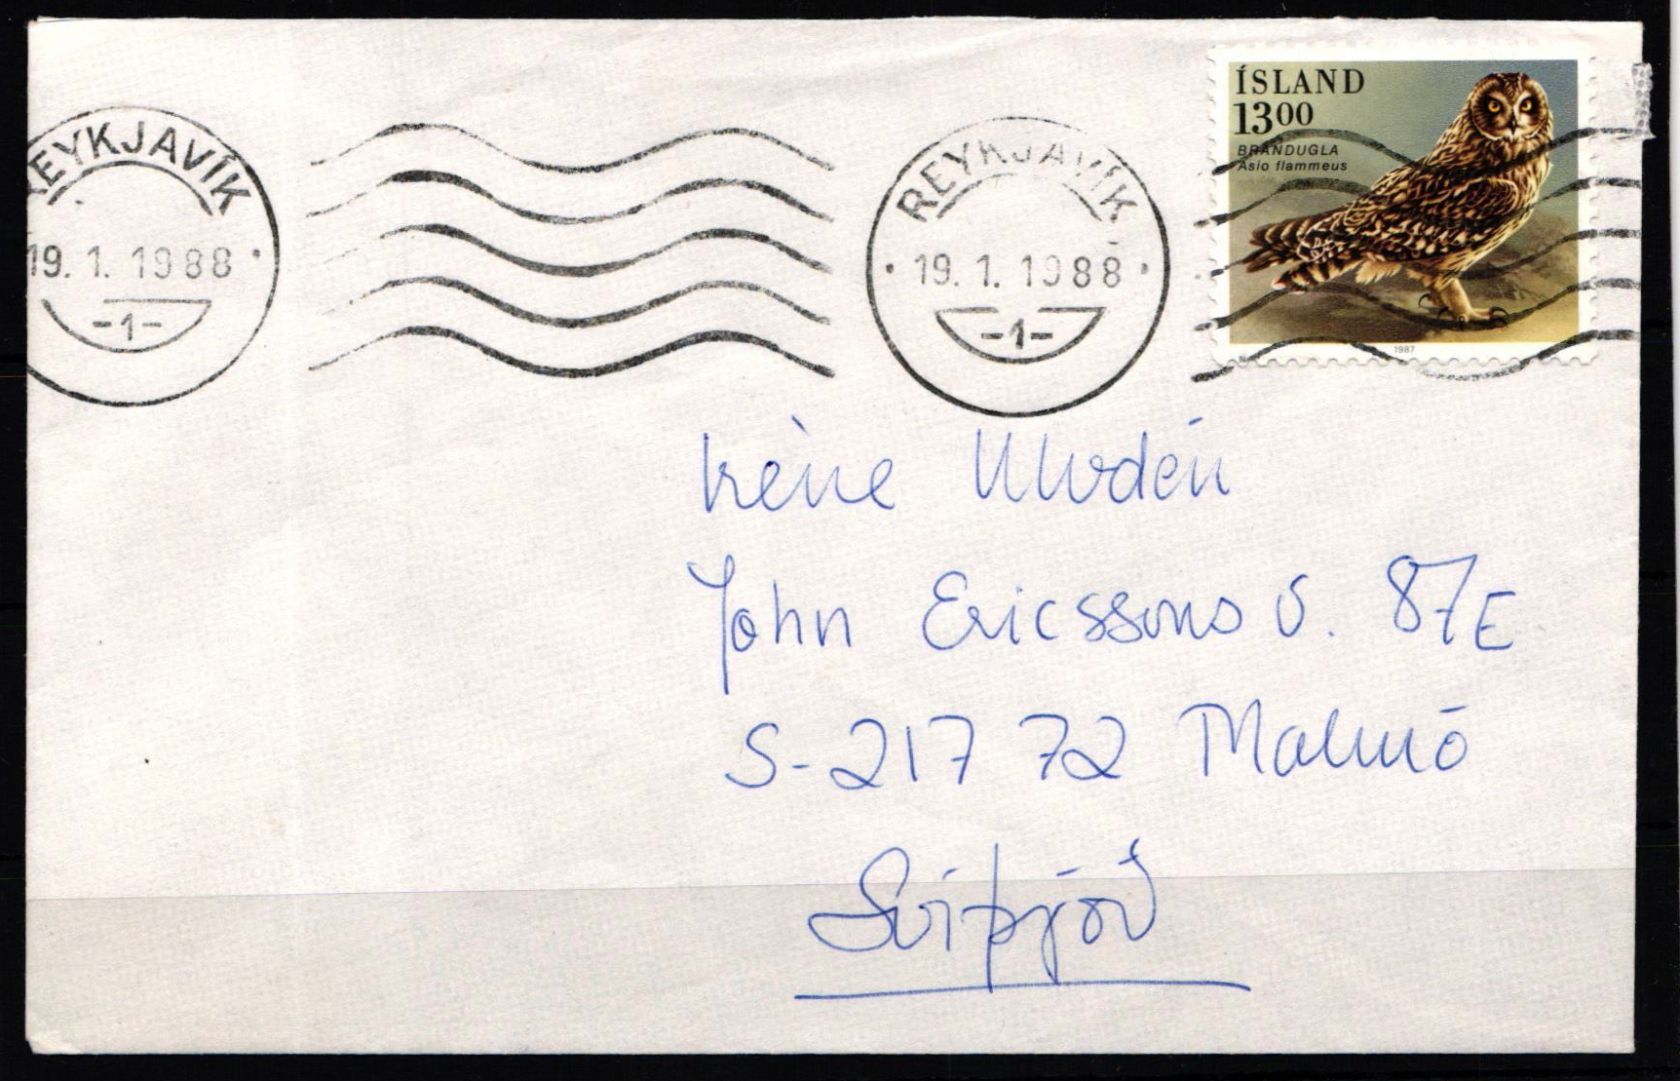 REYKJAVÍK
19. 1. 1988
-1-
REYKJAVÍK
19. 1. 1988
-1-
ÍSLAND
1300
BRANDUGLA
Asio flammeus
1987
Irène
John Ericssons v. 87E
S-217 72 Malmö
Svíþjóð